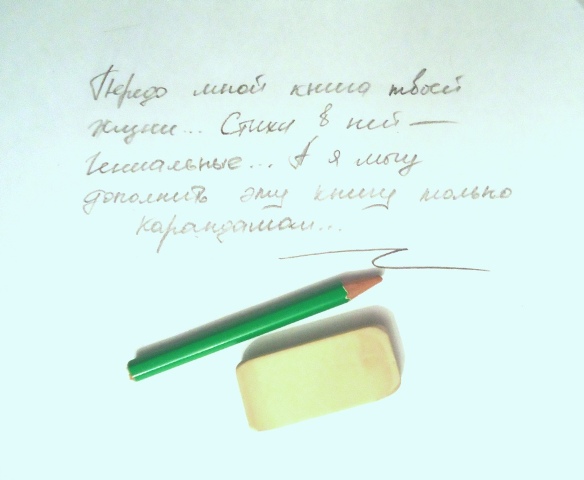 Передо мной книга твоей
жизни... Стихи в ней —
гениальные... А я могу
дополнить эту книгу только
карандашом...